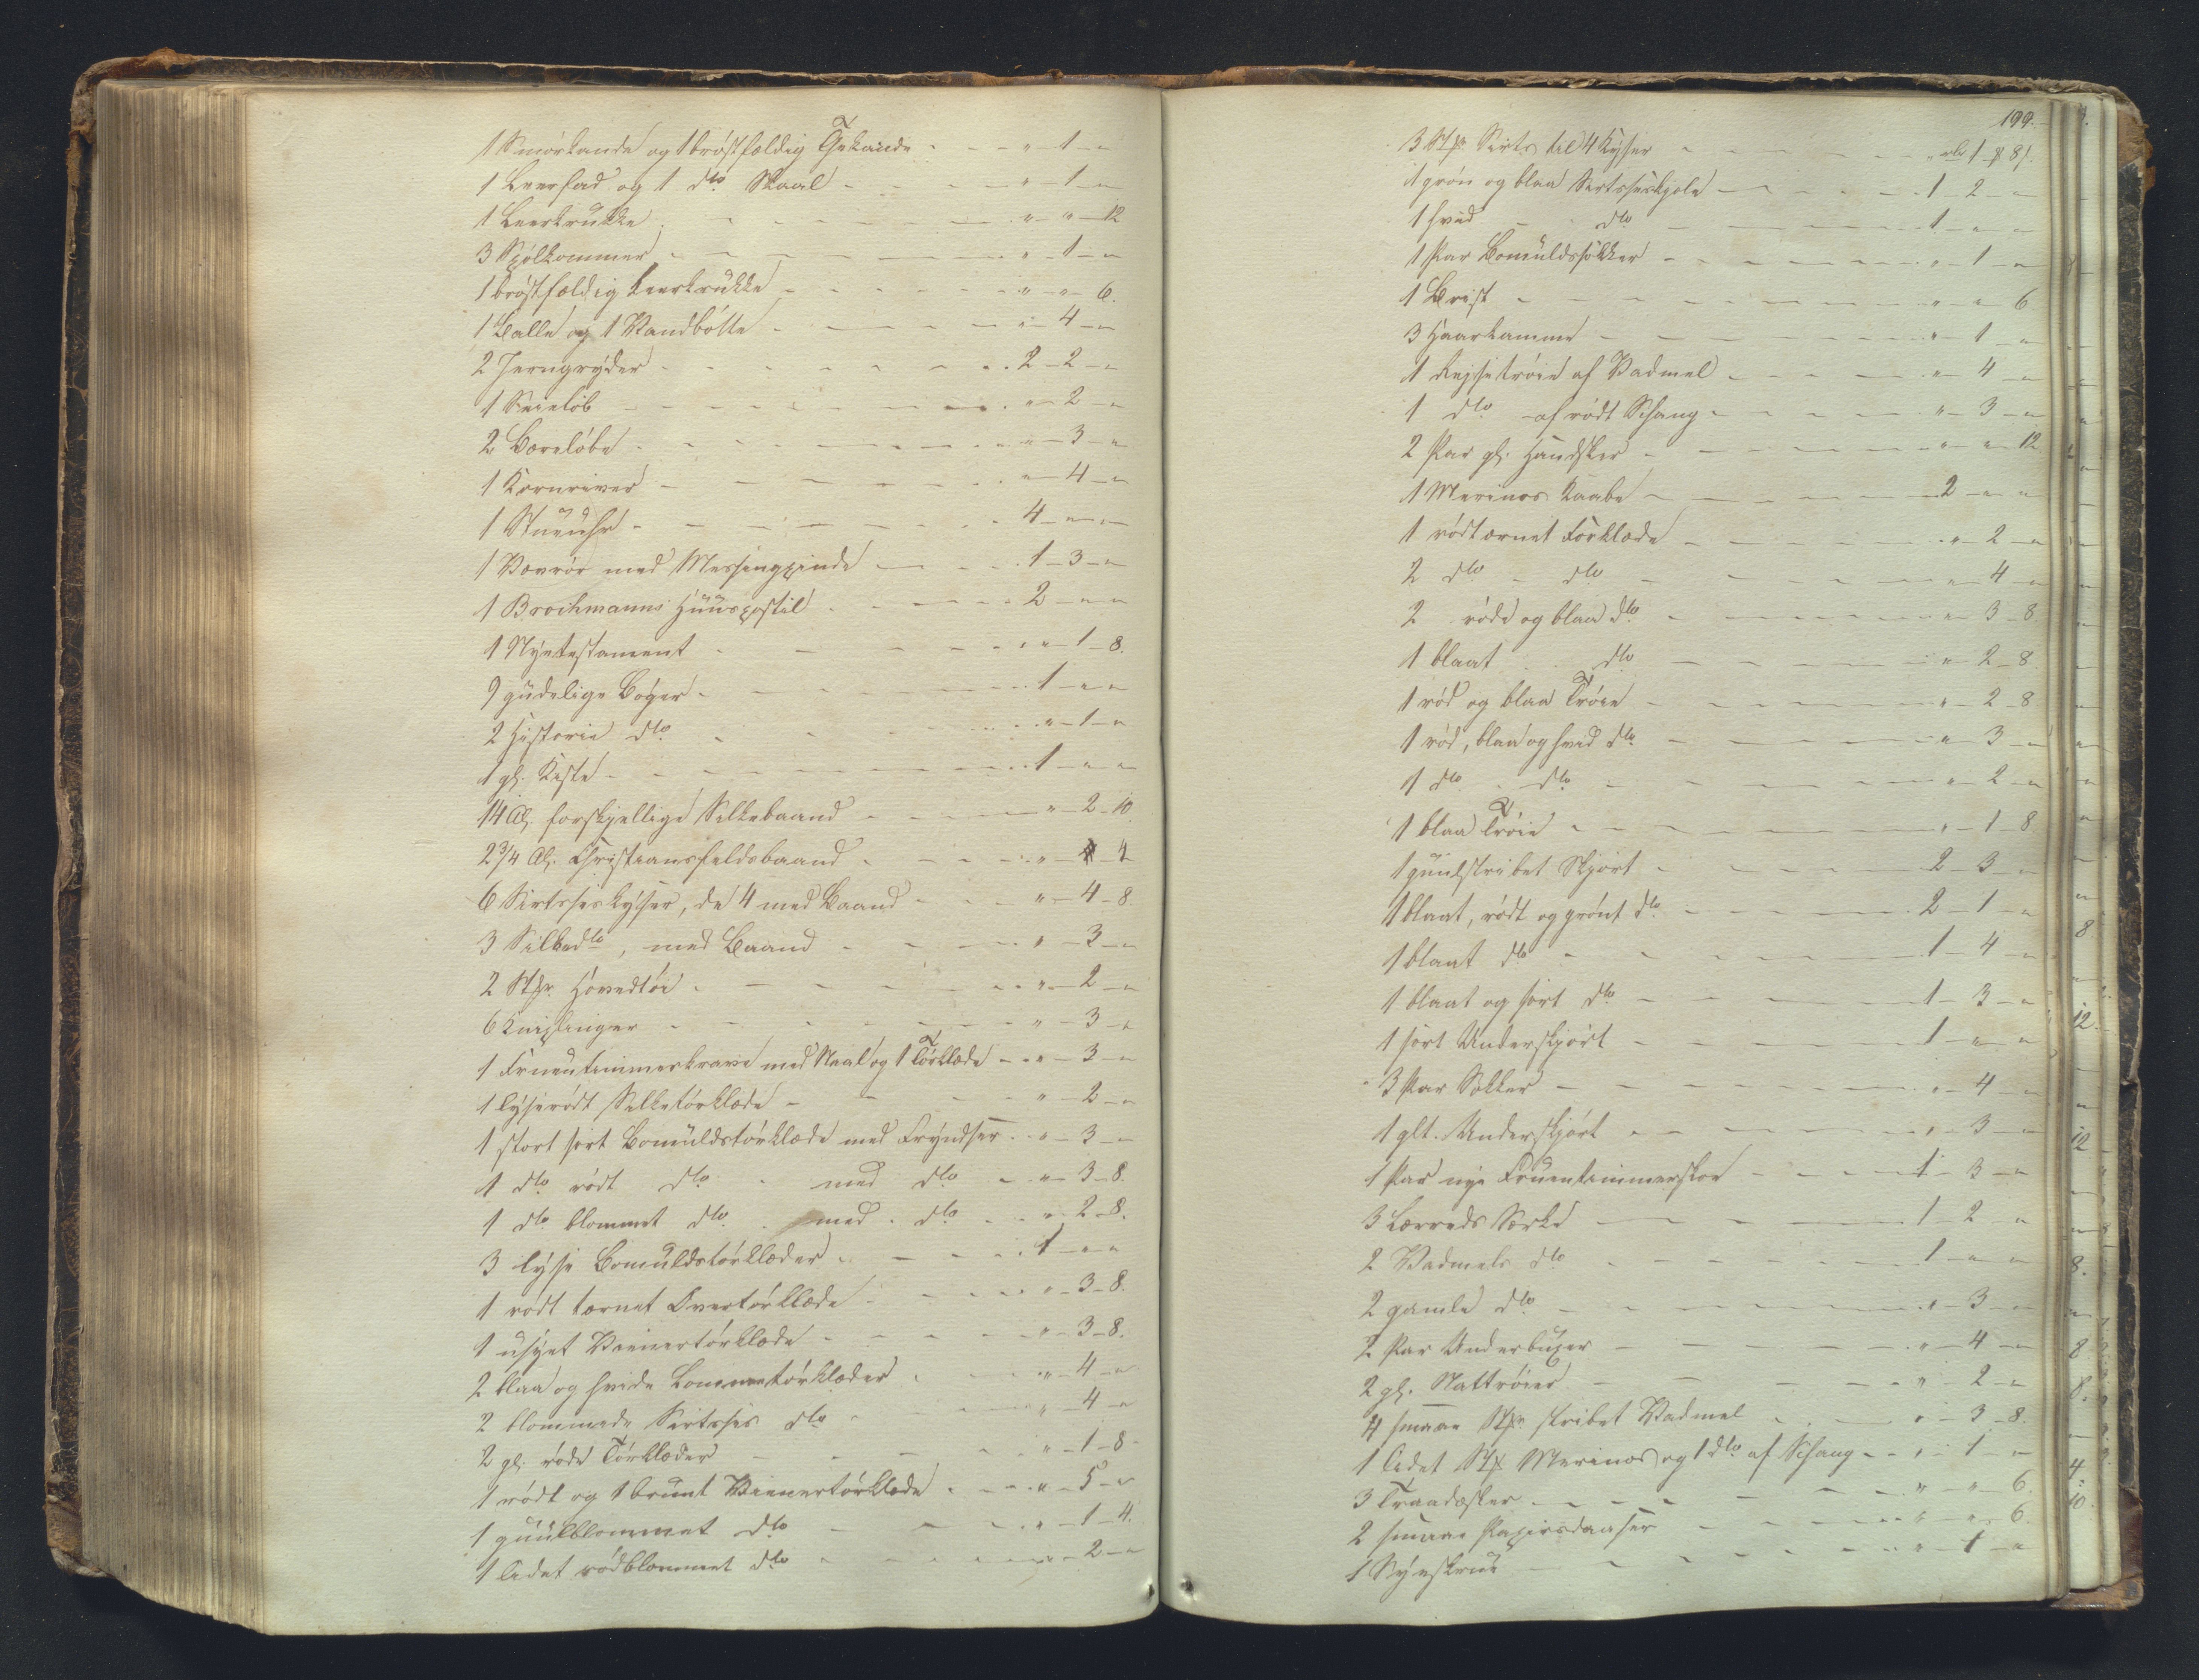 1 Smørkande og 1 brøstfældig Thekande - - - " - 1 - "
1 Leerfad og 1 dto Skaal - - - " - 1 - "
1 Leerkrukke - - - " - " - 12
3 Spølkommer - - - " - 1 - "
1 brøstfældig Leerkrukke - - - " - " - 6.
1 Balle og 1 Vandbøtte - - - " - 4 - "
2 Jerngryder - - - 2 - 2 - "
1 - - - " - 2 - "
2 Bæreløbe - - - " - 3 - "
1 Kornriver - - - " - 4 - "
1 Stueuhr - - - 4 - " - "
1 Vævrør med Messingpinde - - - 1 - 3 - "
1 Brochmanns Huuspostil - - - 2 - " - "
1 Nyetestament - - - " - 1 - 8.
9 gudelige Bøger - - - 1 - " - "
2 Historie dto - - - " - 1 - "
1 gl. Kiste - - - 1 - " - "
14 Al. forskjellige Silkebaand - - - " - 2 - 10.
2 3/4 Al. Christiansfeldsbaand - - - " - - 4
6 Sirtseskyser, de 4 med Baand - - - " - 4 - 8.
3 Silkedto, med Baand - - - " - 3 - "
2 Stkr Hovedtøi - - - " - 2 - "
6 Kniplinger - - - " - 3 - "
1 Fruentimmerkrave med Naal og 1 Tørklæde - - " - 3 - "
1 lyserødt Silketørklæde - - - " - 2 - "
1 stort sort Bomuldstørklæde med Fryndser - - " - 3 - "
1 dto rødt dto - med dto - - " - 3 - 8.
1 dto blommet dto - med dto - - " - 2 - 8.
3 lyse Bomuldstørklæder - - - 1 - " - "
1 rødt tærnet Overtørklæde - - - " - 3 - 8.
1 usyet Vienertørklæde - - - " - 3 - 8.
2 blaa og hvide Lommetørklæder - - - " - 4 - "
2 blommede Sirtses dto - - - " - 4 - "
2 gl. røde Tørklæder - - - " - 1 - 8
1 rødt og 1 bruunt Vienertørklæde - - - " - 5 - "
1 guulblommet dto - - - " - 1 - 4.
1 lidet rødblommet dto - - - " - 2 - "
199.
3 Stkr Sirts til 4 Kyser - - - " rbd 1 ¶ 8 s.
1 grøn og blaa Sirtseskjole - - - 1 - 2 - "
1 hvid - dto - - - 1 - " - "
1 Par Bomuldssokker - - - " - 1 - "
1 Brist - - - " - " - 6
3 Haarkamme - - - " - 1 - "
1 Reisetrøie af Vadmel - - - " - 4 - "
1 dto - af rødt Schang - - - " - 3 - "
2 Par gl. Handsker - - - " - " - 12
1 Merinos Kaabe - - - 2 - " - "
1 rødtærnet Forklæde - - - " - 2 - "
2 dto - dto - - - " - 4 - "
2 røde og blaa dto - - - " - 3 - 8
1 blaat dto - - - " - 2 - 8
1 rød og blaa Trøie - - - " - 2 - 8
1 rød, blaa og hvid dto - - - " - 3 - "
1 dto - dto - - - " - 2 - "
1 blaa Trøie - - - " - 1 - 8
1 guulstribet Skjørt - - - 2 - 3 - "
1 blaat, rødt og grønt dto - - - 2 - 1 - "
1 blaat dto - - - 1 - 4 - "
1 blaat og sort dto - - - 1 - 3 - "
1 sort Underskjørt - - - 1 - " - "
3 Par Sokker - - - " - 4 - "
1 glt. Underskjørt - - - " - 3 - "
1 Par nye Fruentimmerskoe - - - 1 - 3 - "
3 Lærreds Særke - - - 1 - 2 - "
2 Vadmels dto - - - 1 - " - "
2 gamle dto - - - " - 3 - "
2 Par Underbuxer - - - " - 4 - "
2 gl. Nattrøier - - - " - 2 - "
4 smaae Stkr stribet Vadmel - - - " - 3 - 8.
1 lidet Stk Merinos og 1 dto af Schang - - " - 1 - "
3 Traadæsker - - - " - " - 6.
2 smaae Papirsdaaser - - - " - " - 6.
1 Syeskrin - - - " - 1 - "